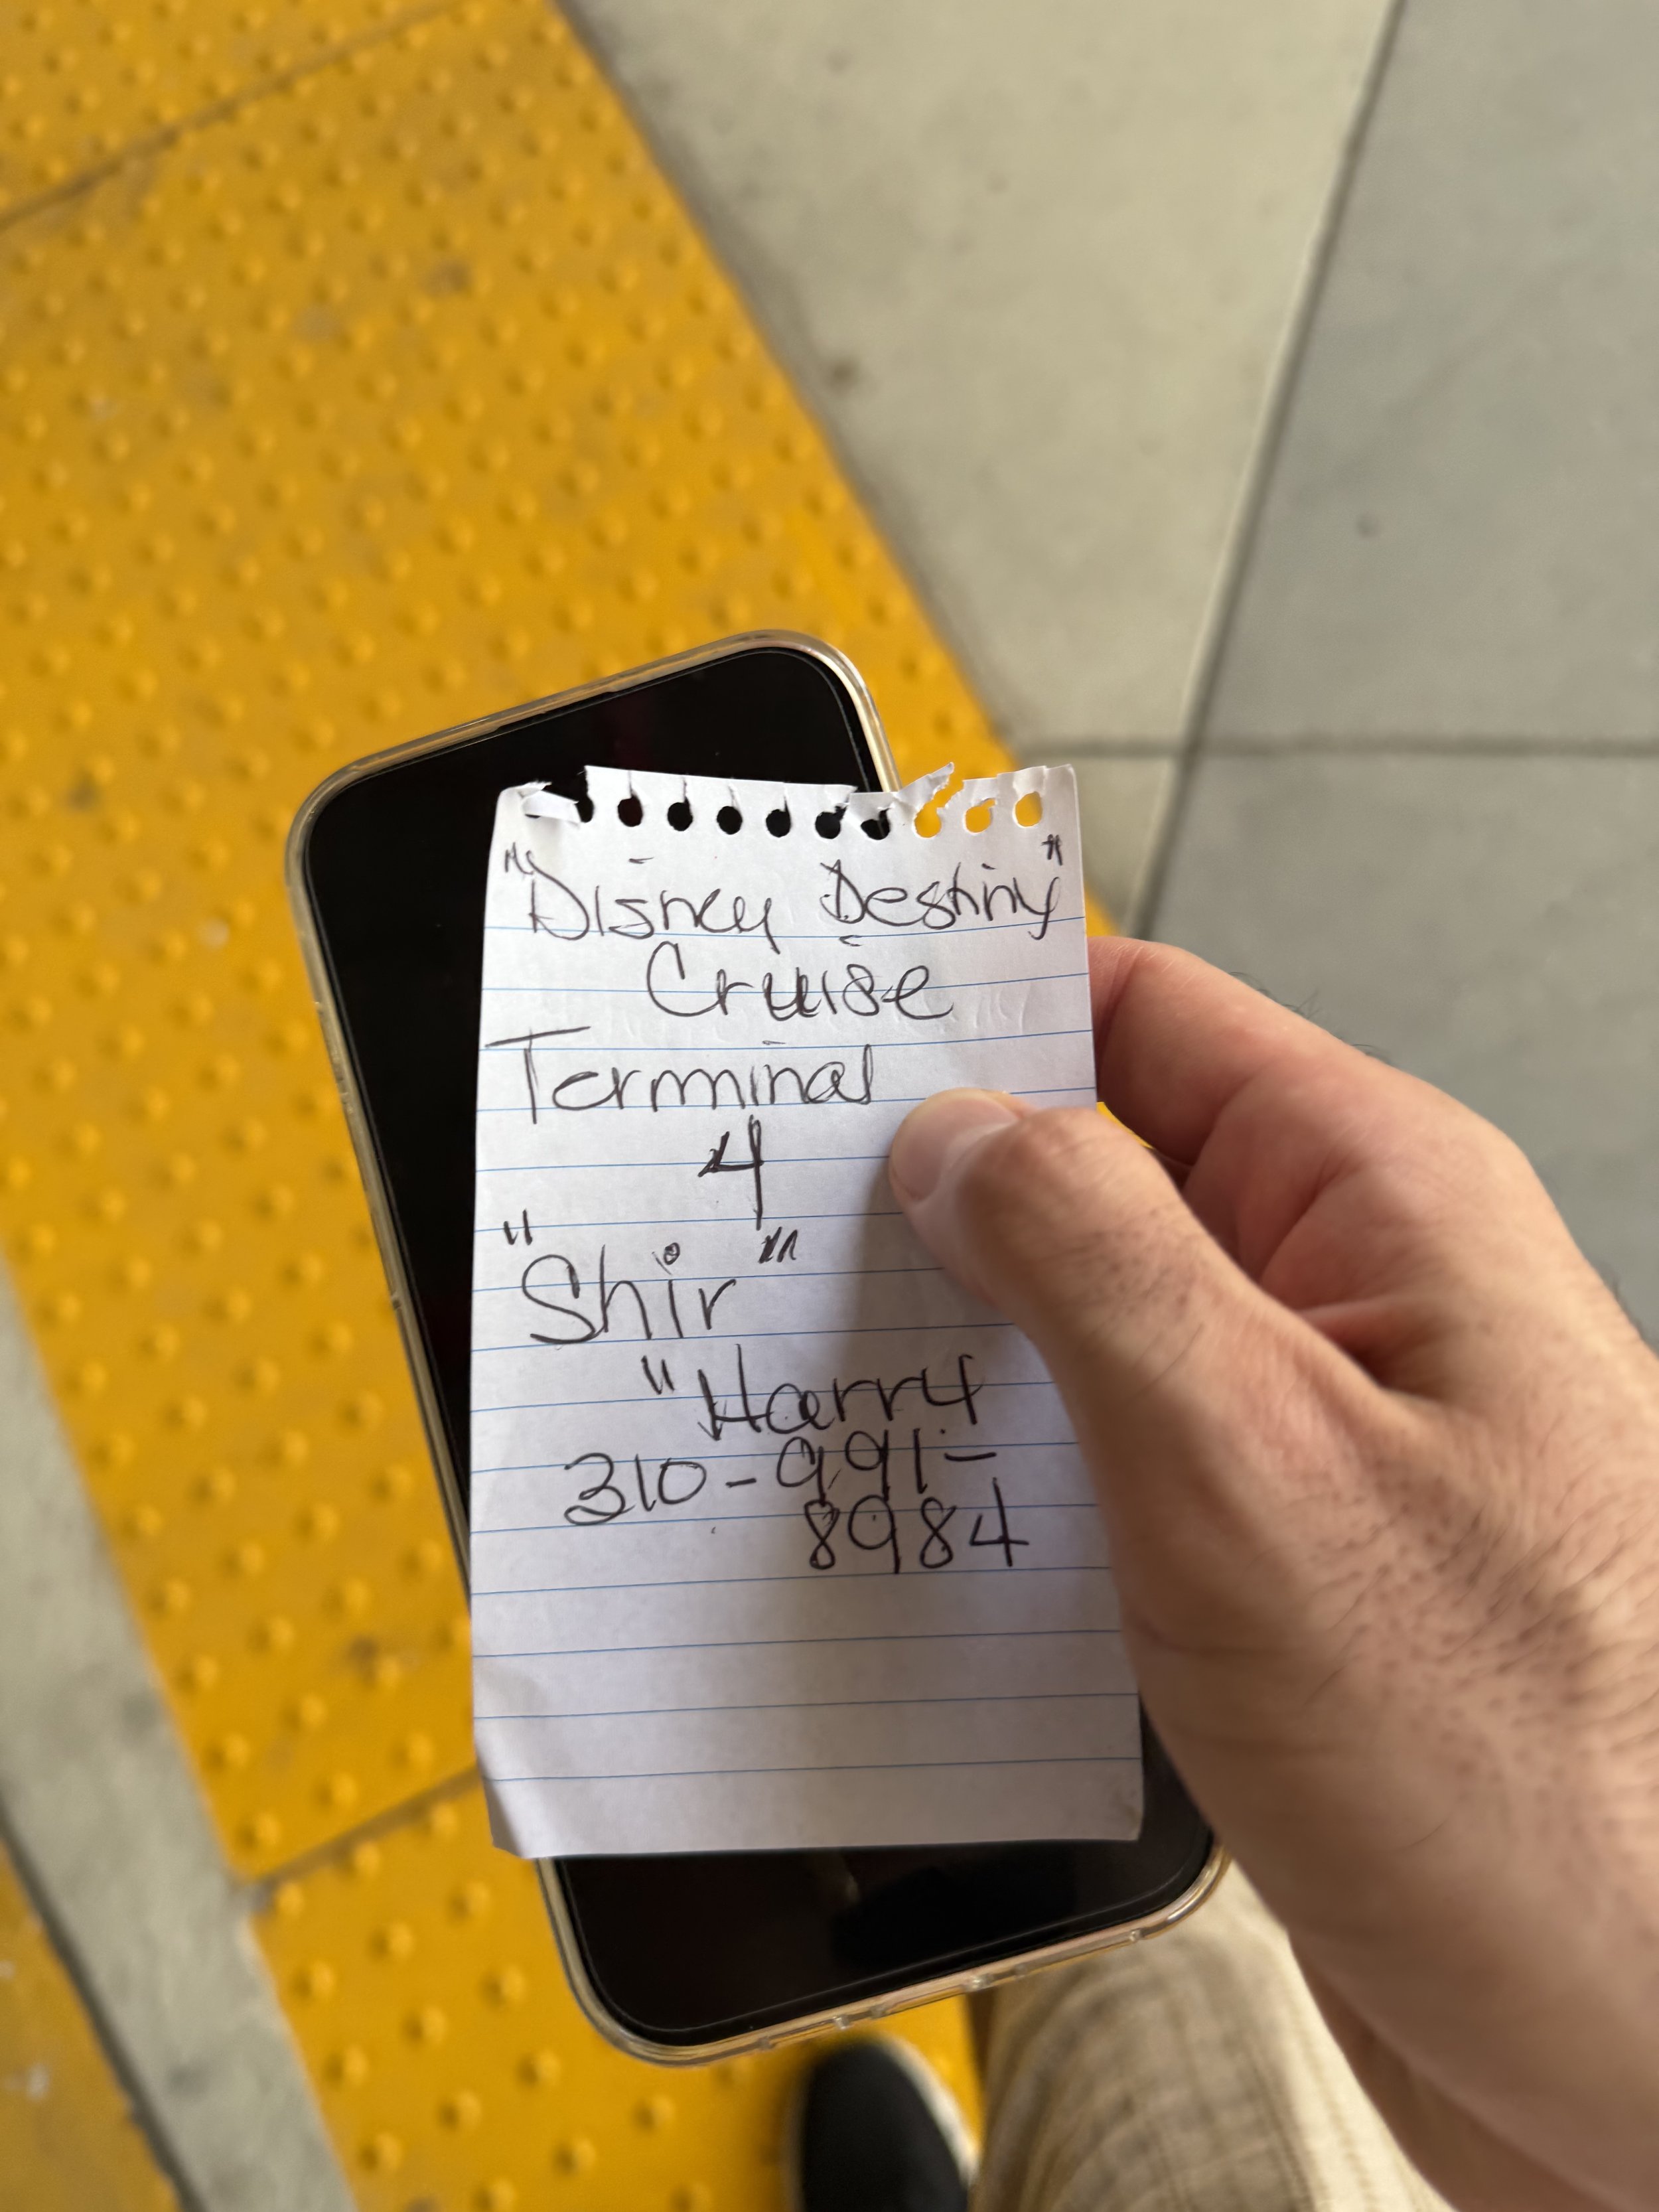 "Disney Destiny"
Cruise
Terminal
4
"Shir"
"Harry
310-991-
8984